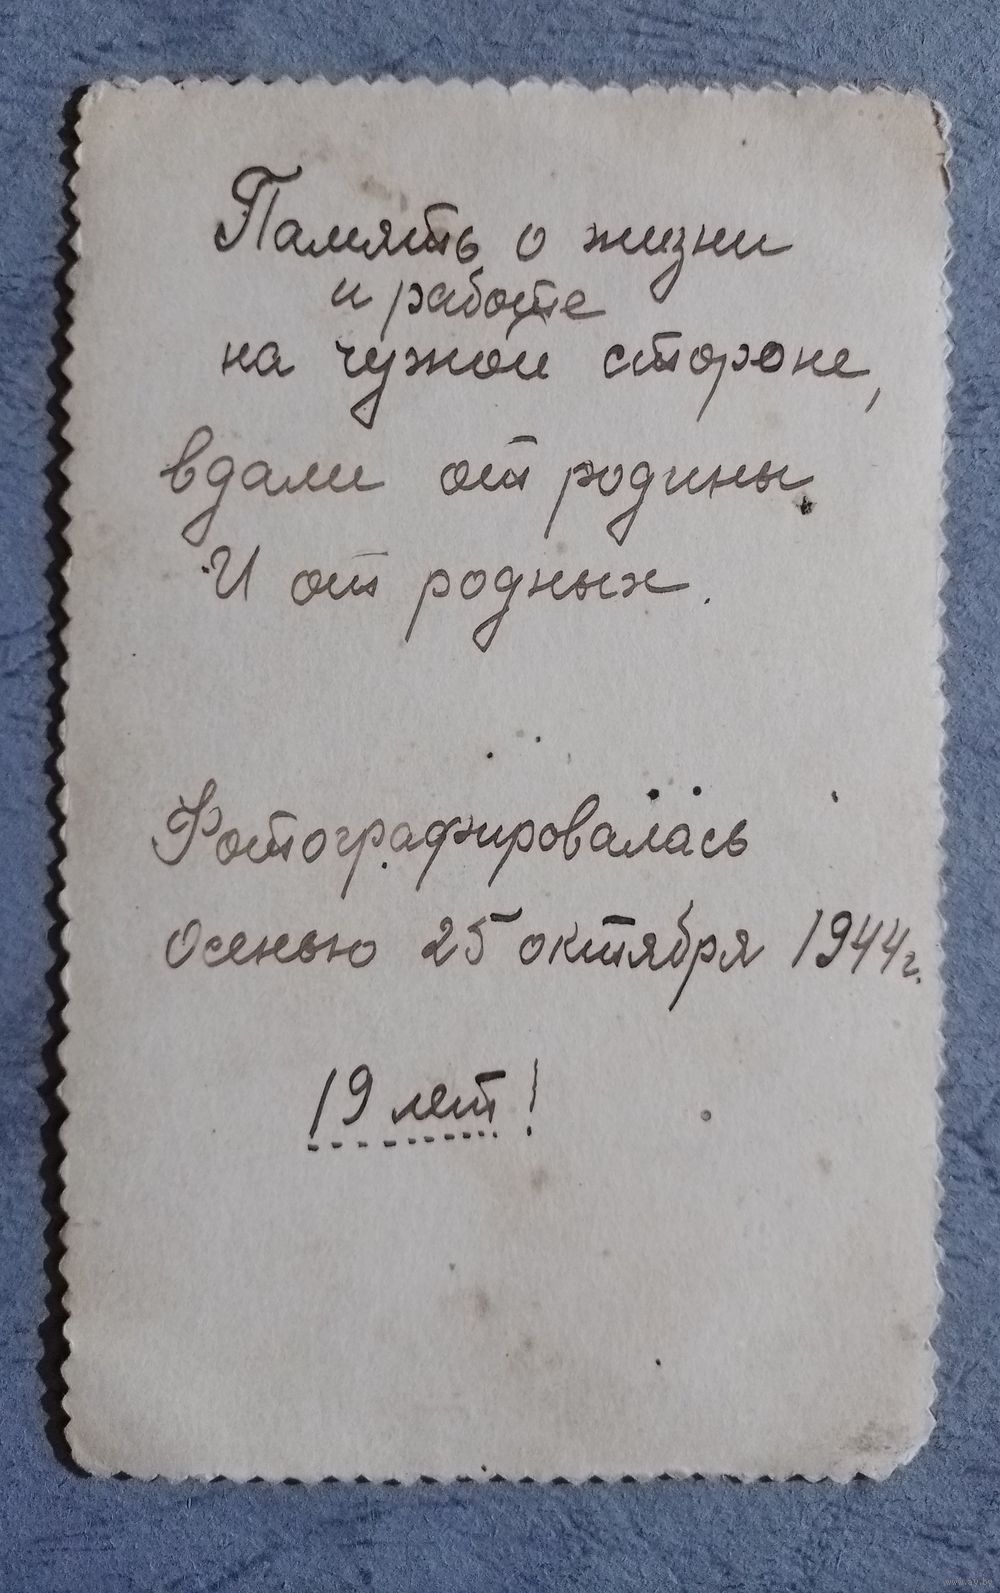 Память о жизни
и работе
на чужой стороне,
вдали от родины
И от родных.
Фотографировалась
осенью 25 октября 1944 г.
19 лет!
www.ay.by